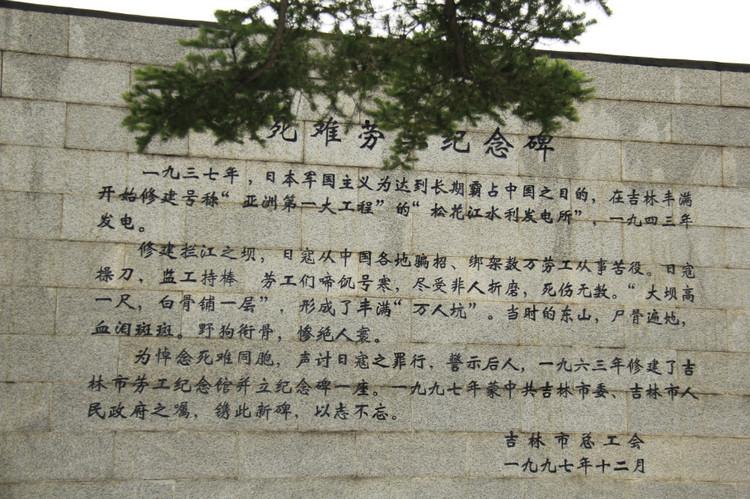 死难劳工纪念碑
一九三七年，日本军国主义为达到长期霸占中国之目的，在吉林丰满
开始修建号称“亚洲第一大工程”的“松花江水利发电所”，一九四三年
发电。
修建拦江之坝，日寇从中国各地骗招、绑架数万劳工从事苦役。日寇
操刀、监工持棒 劳工们啼饥号寒，尽受非人折磨，死伤无数。“大坝高
一尺，白骨铺一层”，形成了丰满“万人坑”。当时的东山，尸骨遍地，
血泪斑斑。野狗衔骨，惨绝人寰。
为悼念死难同胞，声讨日寇之罪行，警示后人，一九六三年修建了吉
林市劳工纪念馆并立纪念碑一座。一九九七年蒙中共吉林市委、吉林市人
民政府之嘱，镌此新碑，以志不忘。
吉林市总工会
一九九七年十二月